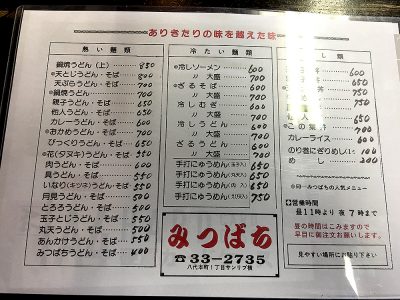 ありきたりの味を越えた味
熱い麺類
鍋焼うどん(上) 850
天とじうどん・そば 800
天ぷらうどん・そば 700
鍋焼うどん 700
親子うどん・そば 650
他人うどん・そば 650
カレーうどん・そば 600
おかめうどん・そば 700
びっくりうどん・そば 650
花(タヌキ)うどん・そば 550
肉うどん・そば 600
具うどん・そば 550
いなり(キツネ)うどん・そば 550
月見うどん・そば 500
とろろうどん・そば 500
玉子とじうどん・そば 550
丸天うどん・そば 500
あんかけうどん・そば 550
みつばちうどん・そば 400
冷たい麺類
冷しソーメン 600
〃 大盛 700
ざるそば 600
〃 大盛 700
冷しむぎ 600
〃 大盛 700
冷しうどん 600
〃 大盛 700
ざるうどん 600
〃 大盛 700
手打にゅうめん 650
手打にゅうめん 650
手打にゅうめん(肉入) 650
手打にゅうめん 750
し類
丼 600
650
丼 700
650
他人 650
この葉丼 600
カレーライス 600
のり巻にぎりめし
めし 200
◎印…みつばちの人気メニュー
営業時間
昼11時より 夜7時まで
昼の時間はこみますので
早目に御注文お願いします。
見やすい場所にお貼り下さい
みつばち
☎33-2735
八代本町1丁目サンリブ横